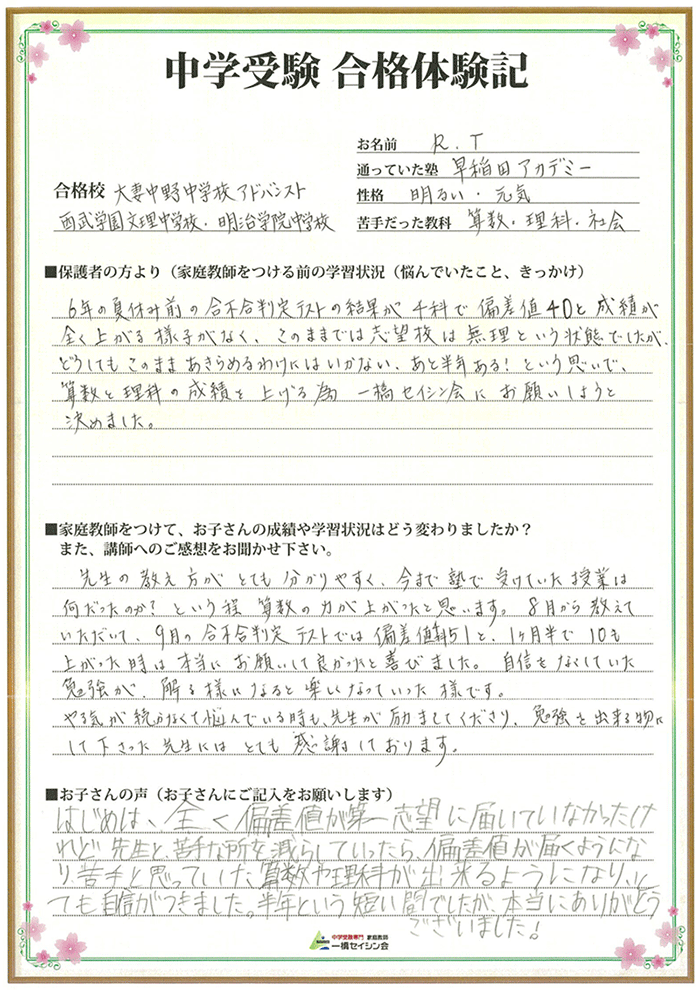 中学受験 合格体験記
お名前 R.T
通っていた塾 早稲田アカデミー
合格校 大妻中野中学校アドバンスト
性格 明るい・元気
西武学園文理中学校・明治学院中学校
苦手だった教科 算数・理科・社会
■保護者の方より（家庭教師をつける前の学習状況（悩んでいたこと、きっかけ）
6年の夏休み前の合不合判定テストの結果が4科で偏差値40と成績が
全く上がる様子がなく、このままでは志望校は無理という状態でしたが、
どうしてもこのままあきらめるわけにはいかない、あと半年ある！という思いで、
算数と理科の成績を上げる為 一橋セイシン会にお願いしようと
決めました。
■家庭教師をつけて、お子さんの成績や学習状況はどう変わりましたか？
また、講師へのご感想をお聞かせ下さい。
先生の教え方がとても分かりやすく、今まで塾で受けていた授業は
何だったのか？という程 算数の力が上がったと思います。8月から教えて
いただいて、9月の合不合判定テストでは偏差値4科51と、1ヶ月半で10も
上がった時は本当にお願いして良かったと喜びました。自信をなくしていた
勉強が、解る様になると楽しくなっていった様です。
やる気が続かなくて悩んでいる時も、先生が励ましてくださり、勉強を出来る物に
して下さった先生にはとても感謝しております。
■お子さんの声（お子さんにご記入をお願いします）
はじめは、全く偏差値が第一志望に届いていなかったけ
れど先生と、苦手な所を減らしていったら、偏差値が届くようにな
り、苦手と思っていた算数や理科が出来るようになり、と
ても自信がつきました。半年という短い間でしたが、本当にありがとう
ございました！
中学受験専門 家庭教師
一橋セイシン会